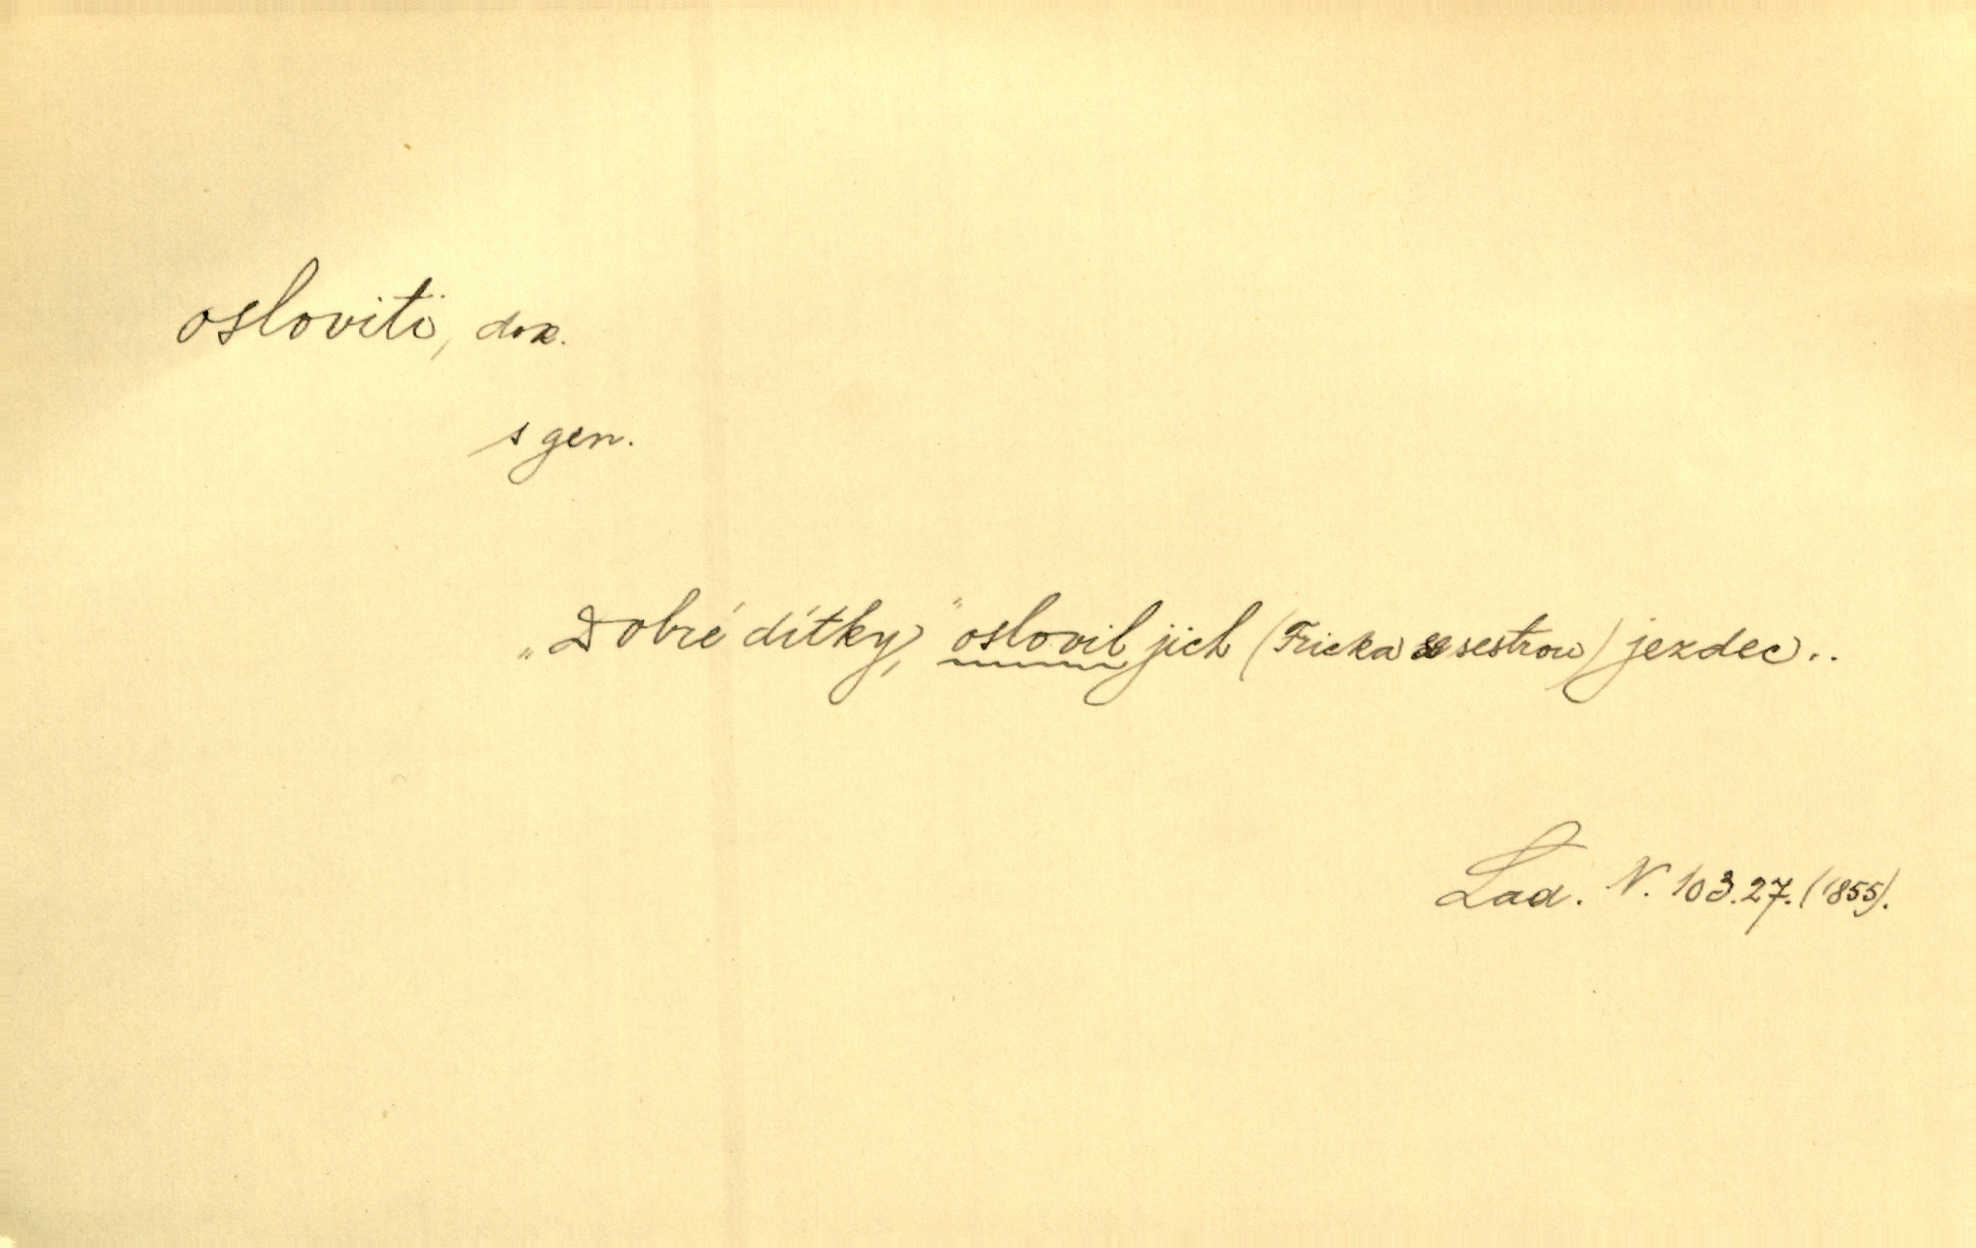 osloviti, dok.
s gen.
„Dobré dítky," oslovil jich (Fricka se sestrou) jezdec..
Lad. N. 103.27. (1855).